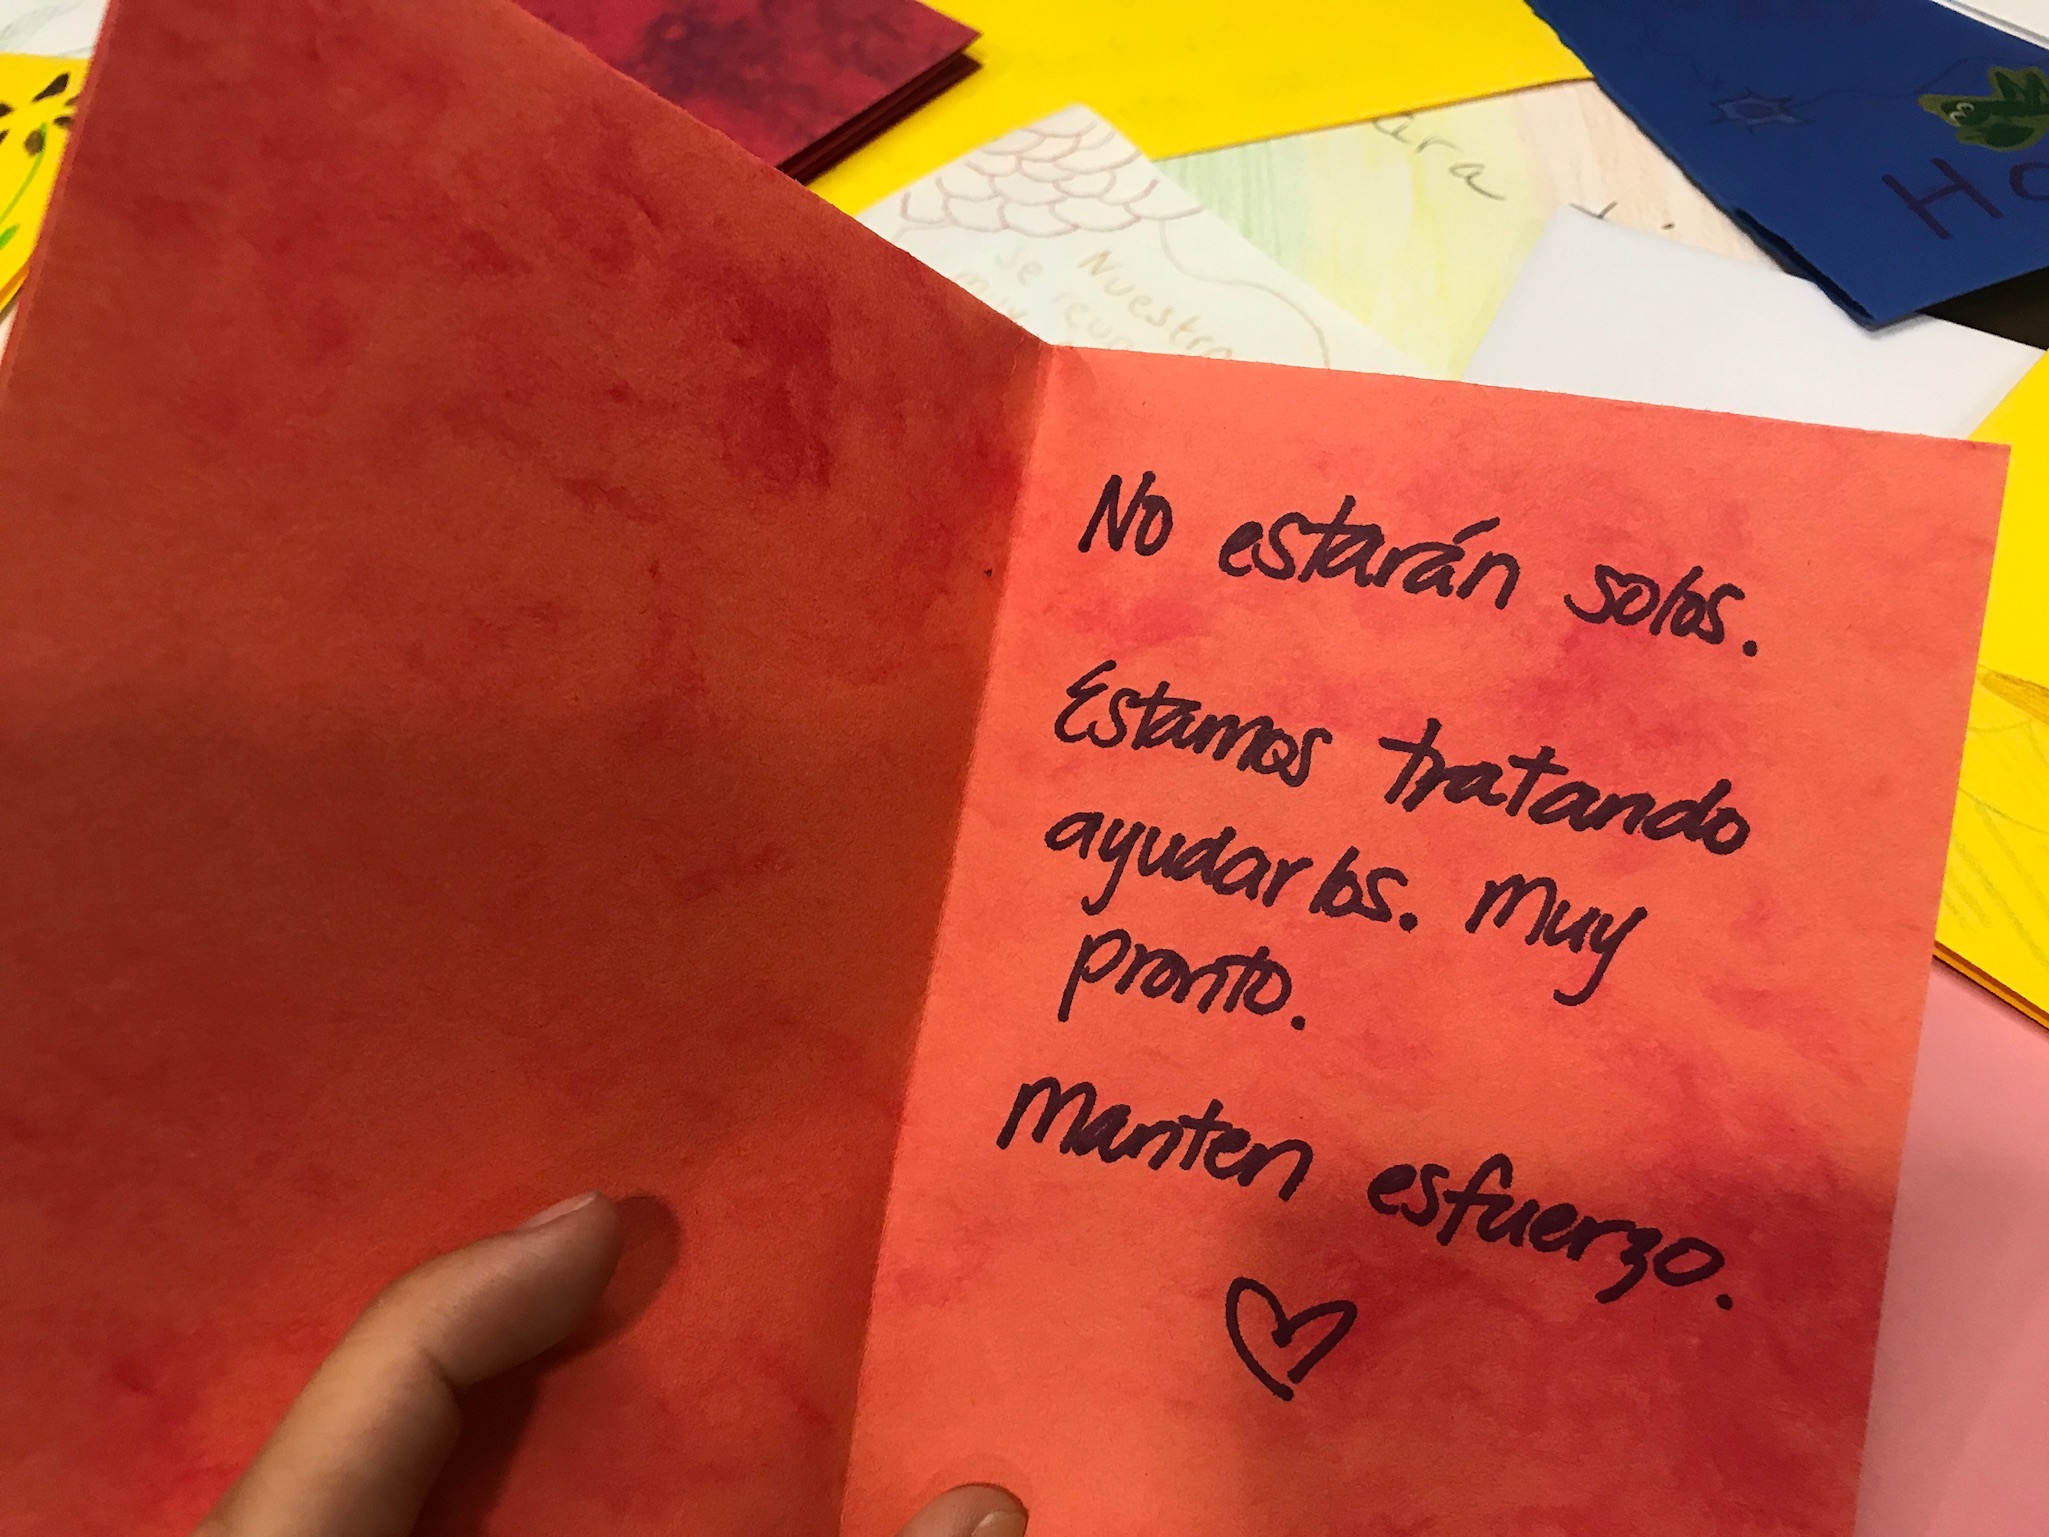 No estarán solos.
Estamos tratando
ayudarlos. Muy
pronto.
Manten esfuerzo.
Nuestra
se
ara
Ho